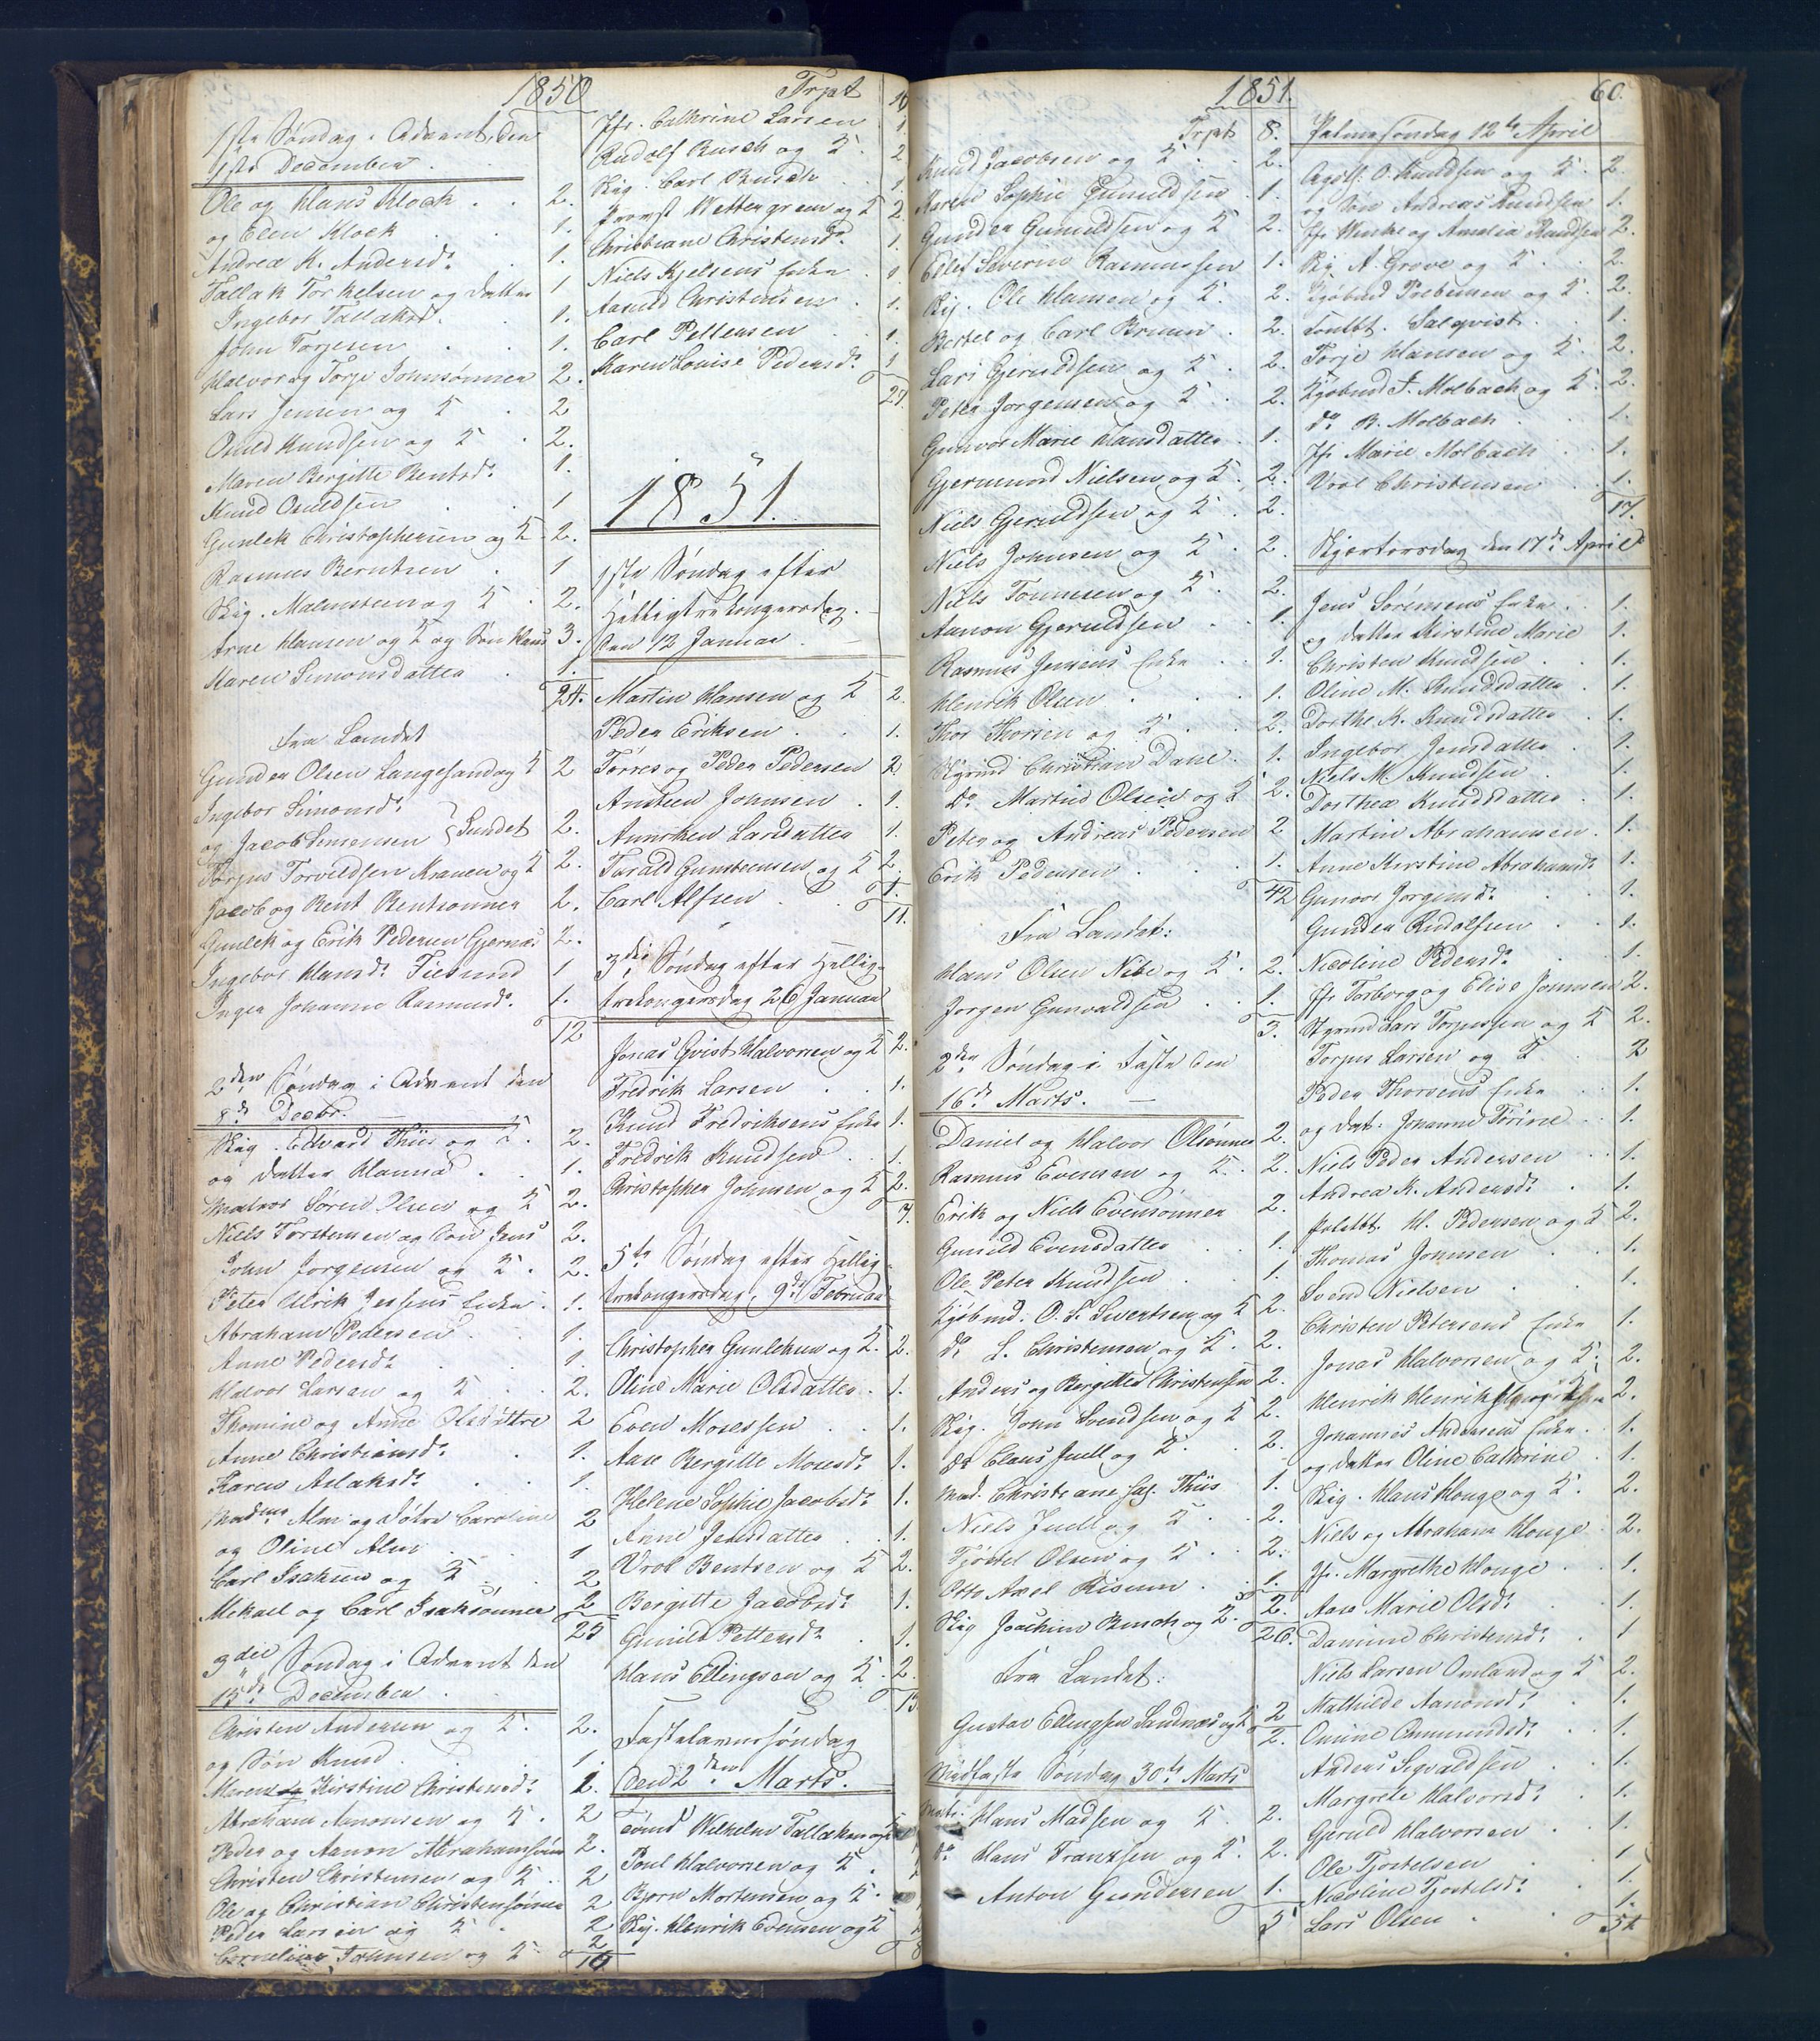 1850
1ste Søndag i Advent, den
1ste December
Ole og Hans Klock . . 2.
og Elen Klock . 1.
Andrea K. Andersd. 1.
Tallak Torkelsen og datter 1
Ingebor Tallaksd. 1.
John Torjesen . 1.
Halvor og Torje Johnsønner 2.
Lars Jensen og K . 2
Omund Knudsen og K . 2.
Maren Bergitte Bentsd. 1.
Knud Omundsen . 1
Gunlek Christophersen og K 2.
Rasmus Berntsen . 1
Skig. Malmsteen og K 2.
Arne Hansen og K og Søn Hans 3.
Karen Simonsdatter . 1.
24.
Fra Landet
Gunder Olsen Langesand og K 2
Ingebor Simonsd.
og Jacob Simonsen } Sundet 2.
Torjus Torvildsen Kranen og K 2.
Jacob og Bent Bentsønner 2.
Gunlek og Erik Pedersen Gjernæs 2.
Ingebor Hansd. 1
Inger Johanne Rasmusd. 1.
12
2den Søndag i Advent den
8de Decbr.
Skig. Edvard Thiis og K. 2.
og datter Hanna . 1.
Matros Søren Olsen og K 2.
Niels Torstensen og Søn Jens 2.
John Jørgensen og K . 2.
Peter Ulrik Jessens Enke . 1.
Abraham Pedersen . 1.
Anne Pedersd. 1.
Halvor Larsen og K . 2.
Thomine og Anne Olsdøttre 2
Anne Christiansd. 1.
Karen Aslaksd. 1.
Mad. Alm og Døtre Caroline 2
og Oline Alm . 1
Carl Isaksen og K . 2
Mekael og Carl Isaksønner 2
25
3die Søndag i Advent den
15de December
Christen Andersen og K . 2.
og Søn Knud . 1.
Maren Kirstine Christensd. 1.
Abraham Aanonsen og K . 2
Peder og Aanon Abrahamsønner 2.
Christen Christensen og K . 2
Ole og Christian Christensønner 2
Peder Larsen og K . 2
Cornelius Johnsen og K 2
16
Trpst 16
Jfr. Cathrine Larsen 1.
Rudolf Busch og K . 2
Skig. Carl Busch . 1.
Provst Wettergreen og K 2.
Christiane Christensd. 1.
Niels Kjelsens Enke . 1
Aanuld Christensen . 1.
Carl Pettersen . 1.
Karen Louise Pedersd. 1
27.
1851.
1ste Søndag efter
Helligtrekongersdag.
den 12 Januar
Martin Hansen og K 2.
Peder Eriksen . 1.
Torres og Peder Pedersen 2
Ansteen Johnsen . 1.
Annichen Larsdatter 1.
Tarald Gunsteensen og K 2
Carl Alfsen . 1.
11.
3die Søndag efter Hellig-
trekongersdag 26 Januar
Jonas Qvist Halvorsen og K 2.
Fredrik Larsen . 1.
Knud Fredriksens Enke 1.
Fredrik Knudsen . 1.
Christopher Johnsen og K 2.
7.
5te Søndag efter Hellig-
trekongersdag, 9de Februar
Christopher Gunleksen og K. 2.
Oline Marie Olsdatter . 1.
Even Mosessen . 1.
Aase Bergitte Mosesd. 1.
Helene Sophie Jacobsd. 1.
Anne Jensdatter . 1.
Vrol Bentsen og K 2.
Bergitte Jacobsd. 1.
Gunild Pettersd. 1.
Hans Ellingsen og K . 2.
13
Fastelavnssøndag
den 2den Marts.
Wilhelm Tallaksen og K
Poul Halvorsen og K .
Bjørn Mortensen og K .
Skig. Henrik Edensen og K
8
1851.
60.
Trpst 8.
Knud Jacobsen og K . 2.
Karen Sophie Gunuldsen 1.
Gunder Gunuldsen og K 2.
Ellef Severin Rasmussen 1.
Skig. Ole Hansen og K . 2.
Bertel og Carl Bruun . 2.
Lars Gjeruldsen og K . 2.
Peter Jørgensen og K . 2.
Gunvor Marie Hansdatter . 1.
Gjermund Nielsen og K . 2.
Niels Gjeruldsen og K . 2.
Niels Johnsen og K . 2.
Niels Tønnesen og K . 2.
Aanon Gjeruldsen . 1.
Rasmus Jensens Enke . 1.
Henrik Olsen . 1.
Thor Thorsen og K . 2.
Styrmd Christian Dahl . 1.
do Martin Olsen og K 2.
Peter og Andreas Pedersen 2
Erik Pedersen . 1.
42
Fra Landet:
Hans Olsen Nibe og K . 2.
Jørgen Gunvaldsen . 1.
3.
2den Søndag i Faste den
16de Marts.
Daniel og Halvor Olsønner 2.
Rasmus Evensen og K . 2.
Erik og Niels Evensønner 2.
Gunild Evensdatter . 1.
Ole Peter Knudsen . 1.
Kjøbmd. O. S. Sivertsen og K 2.
do L. Christensen og K . 2.
Anders og Bergitte Christensen 2.
Skig. John Svendsen og K 2.
do Claus Juell og K . 2.
Mad. Christiane sal. Thiis 1.
Niels Juell og K . 2.
Tjøstel Olsen og K . 2.
Otto Axel Risum . 1.
Skig Joachim Busch og K . 2.
26.
Fra Landet:
Gustav Ellingsen Sandnæs og K 2
2.
Midfaste Søndag 30te Marts
Matr: Hans Madsen og K . 2.
do Hans Frantzen og K . 2.
Anton Gundersen 1.
5
Palmesøndag 12te April
O. Knudsen og K . 2.
og Søn Andreas Knudsen 1.
Jfr Wencke og Amalia Knudsen 2.
Skig A. Grove og K . 2.
Kjøbmd Prebensen og K . 2.
Salqvist . 1.
Torje Hansen og K . 2.
Kjøbmd F. Molbach og K . 2.
do B. Molbach . 1.
Jfr Marie Molbach . 1.
Vrol Christensen . 1.
17.
Skjertorsdag den 17de April
Jens Sørensens Enke . 1.
og datter Kirstine Marie 1.
Christen Knudsen . 1.
Oline M. Knudsdatter . 1.
Dorthe K. Knudsdatter . 1.
Ingebor Jensdatter . 1.
Niels M. Knudsen . 1.
Dorthea Knudsdatter . 1.
Martin Abrahamsen . 1.
Anne Kirstine Abrahamsd. 1.
Gunvor Jørgensd. 1.
Gunder Rudolfsen . 1.
Nicoline Pedersd. 1.
Jfr Torborg og Elise Johnsen 2.
Styrmd Lars Torjussen og K 2.
Torjus Larsen og K . 2
Peder Thorsens Enke . 1.
og dat. Johanne Torine . 1.
Niels Peder Andersen . 1.
Andrea K. Andersd. 1.
H. Pedersen og K 2.
Thomas Johnsen . 1.
Svend Nielsen . 1.
Christen Petersens Enke 1.
Jonas Halvorsen og K . 2.
Henrik Henriksen 2.
Johannes Andersens Enke . 1.
og datter Oline Cathrine . 1.
Skig. Hans Houge og K . 2.
Niels og Abraham Houge . 2.
Jfr. Margrethe Houge . 1.
Aase Marie Olsd. 1.
Damine Christensd. 1
Niels Larsen Omland og K 2.
Mathilde Aanonsd. 1.
Omine Ommundsd. 1.
Anders Sigvaldsen . 1.
Margrete Halvorsd. 1.
Gjeruld Halvorsen . 1.
Ole Tjostelsen . 1
Nicoline Tjostelsd. 1.
Lars Olsen . 1.
51